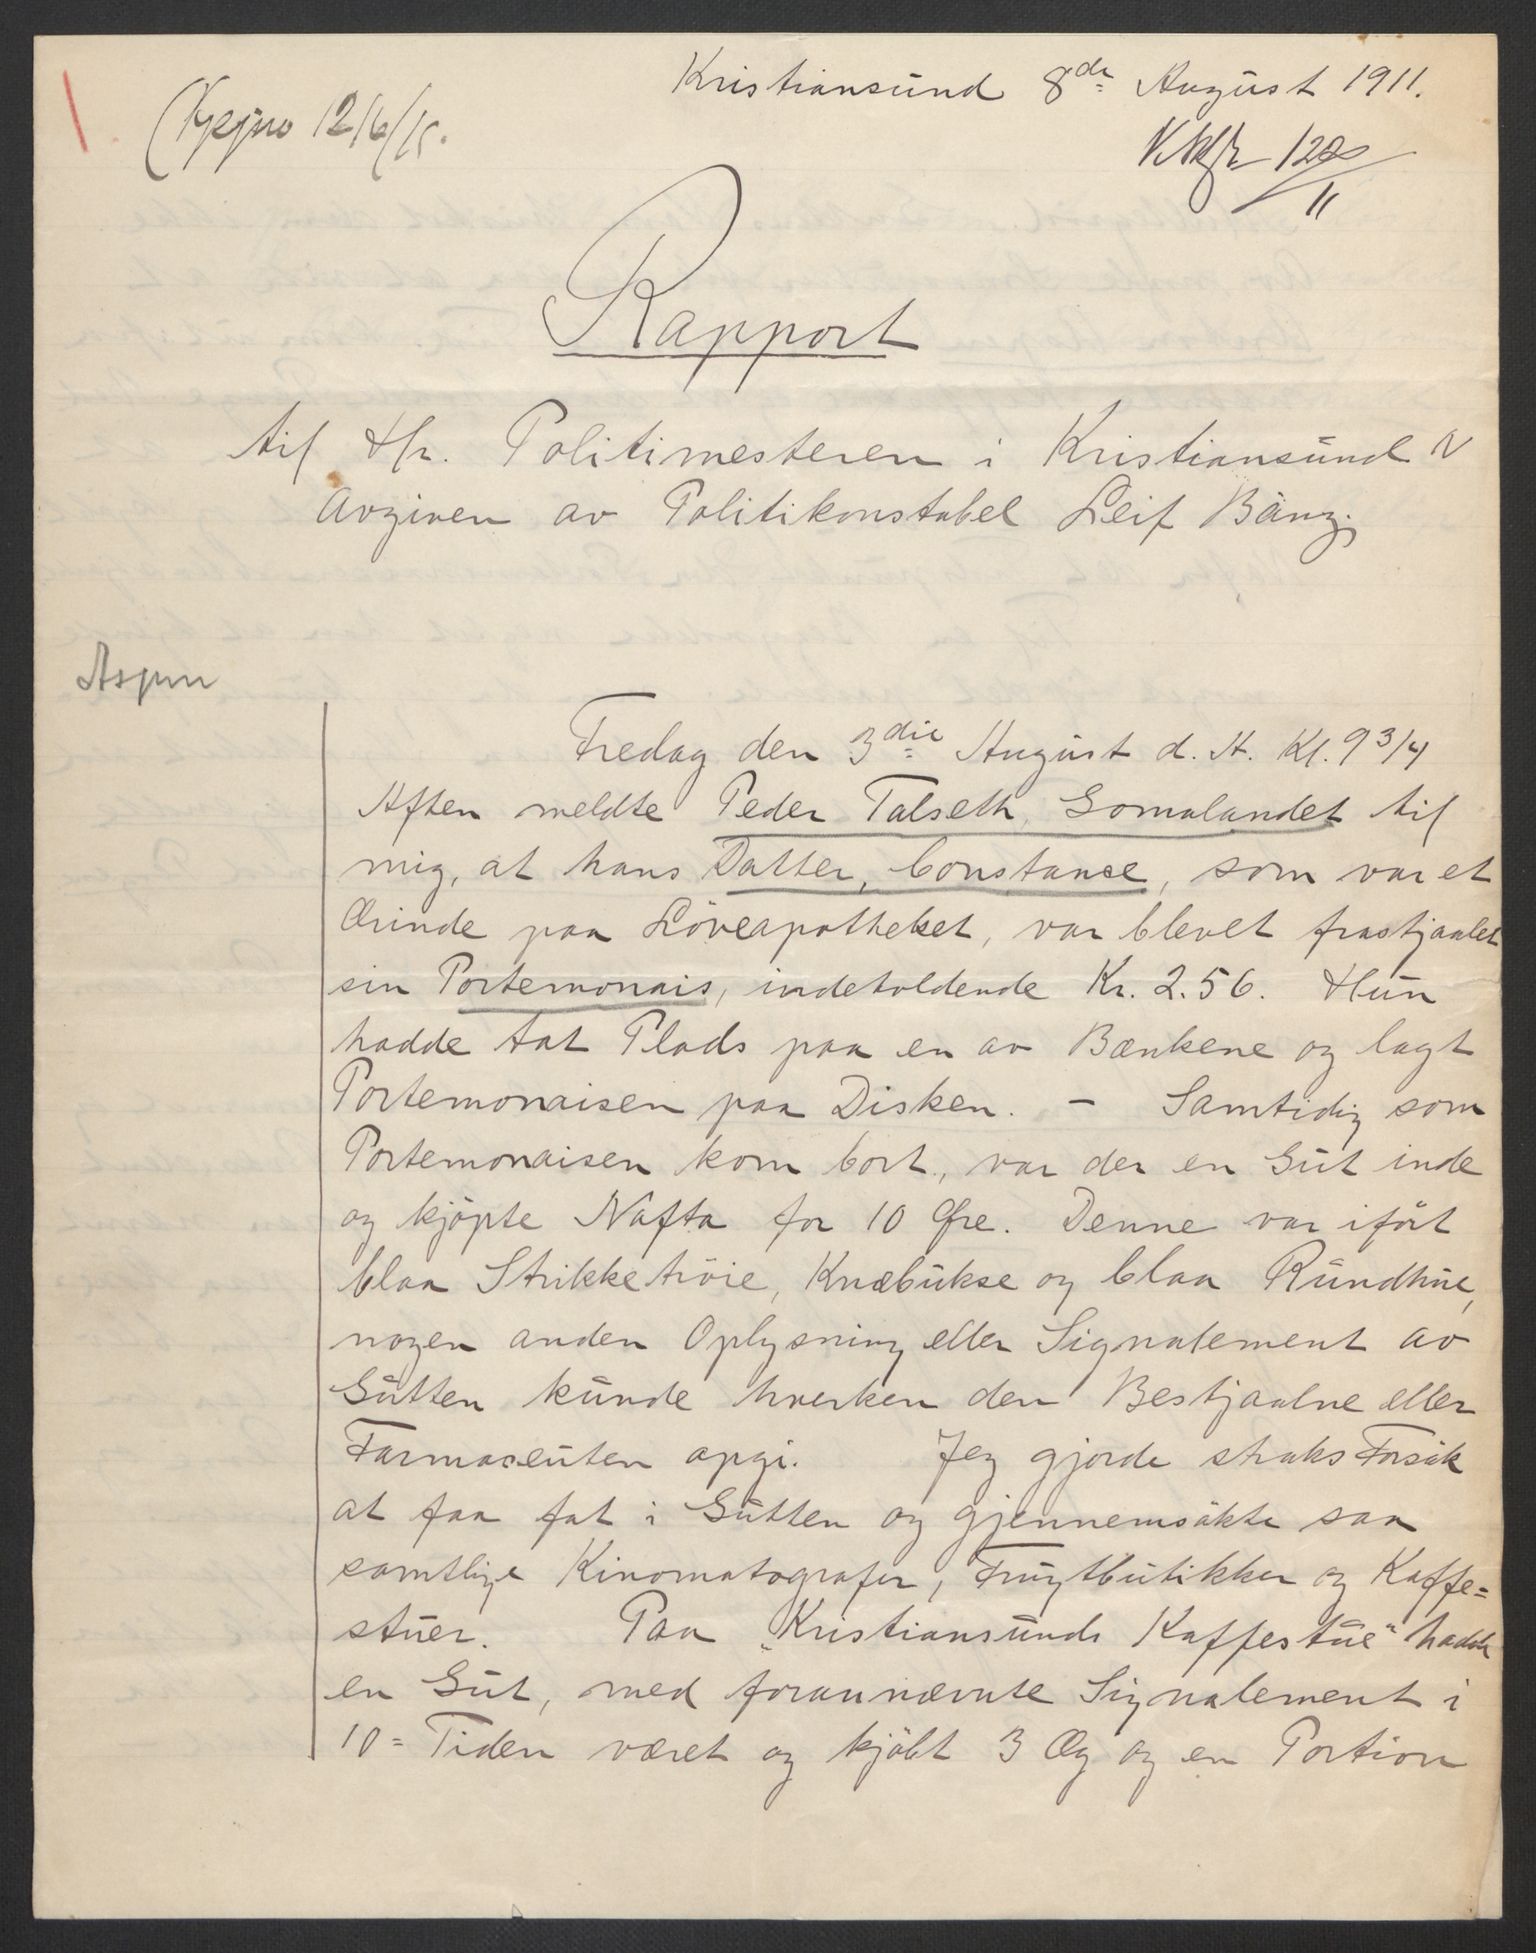 Kristiansund 8de August 1911.
12/6/11.
128
11
Rapport
til Hr. Politimesteren i Kristiansund N
avgiven av Politikonstabel Leif Bäng.
Aspnn
Fredag den 3die August d. A. Kl. 9 3/4
Aften meldte Peder Talseth, Gomalandet til
mig, at hans Datter, Constance, som var et
Ærinde paa Löveapotheket, var blevet frastjaalet
sin Portemonais, indeholdende Kr. 2.56. Hun
hadde tat Plads paa en av Bænkene og lagt
Portemonaisen paa Disken. - Samtidig som
Portemonaisen kom bort, var der en Gut inde
og kjöpte Nafta for 10 Øre. Denne var ifört
blaa Strikketröie, Knæbukse og blaa Rundhue,
nogen anden Oplysning eller Signalement av
Gutten kunde hverken den Bestjaalne eller
Farmaceuten opgi. Jeg gjorde straks Forsök
at faa fat i Gutten og gjennemsökte saa
samtlige Kinomatografer, Frugtbutikker og Kaffe=
stuer. Paa "Kristiansunds Kaffestue" hadde
en Gut, med forannævnte Signalement i
10= Tiden været og kjöbt 3 Æg og en Portion